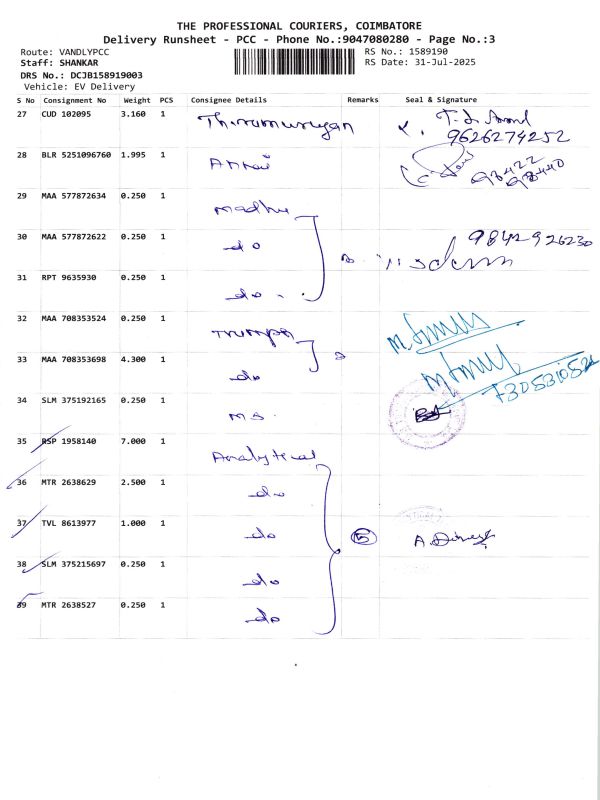 THE PROFESSIONAL COURIERS, COIMBATORE
Delivery Runsheet - PCC - Phone No.:9047080280 - Page No.:3
Route: VANDLYPCC RS No.: 1589190
Staff: SHANKAR RS Date: 31-Jul-2025
DRS No.: DCJB158919003
Vehicle: EV Delivery
S No Consignment No Weight PCS Consignee Details Remarks Seal & Signature
27 CUD 102095 3.160 1 Thirumurugan
9626274252
28 BLR 5251096760 1.995 1
29 MAA 577872634 0.250 1 Madhu
30 MAA 577872622 0.250 1 do 9842926230
31 RPT 9635930 0.250 1 do
32 MAA 708353524 0.250 1
33 MAA 708353698 4.300 1 do
34 SLM 375192165 0.250 1 M.S.
35 RSP 1958140 7.000 1 Analytical
36 MTR 2638629 2.500 1 do
37 TVL 8613977 1.000 1 do 5 A. Dinesh
38 SLM 375215697 0.250 1 do
39 MTR 2638527 0.250 1 do